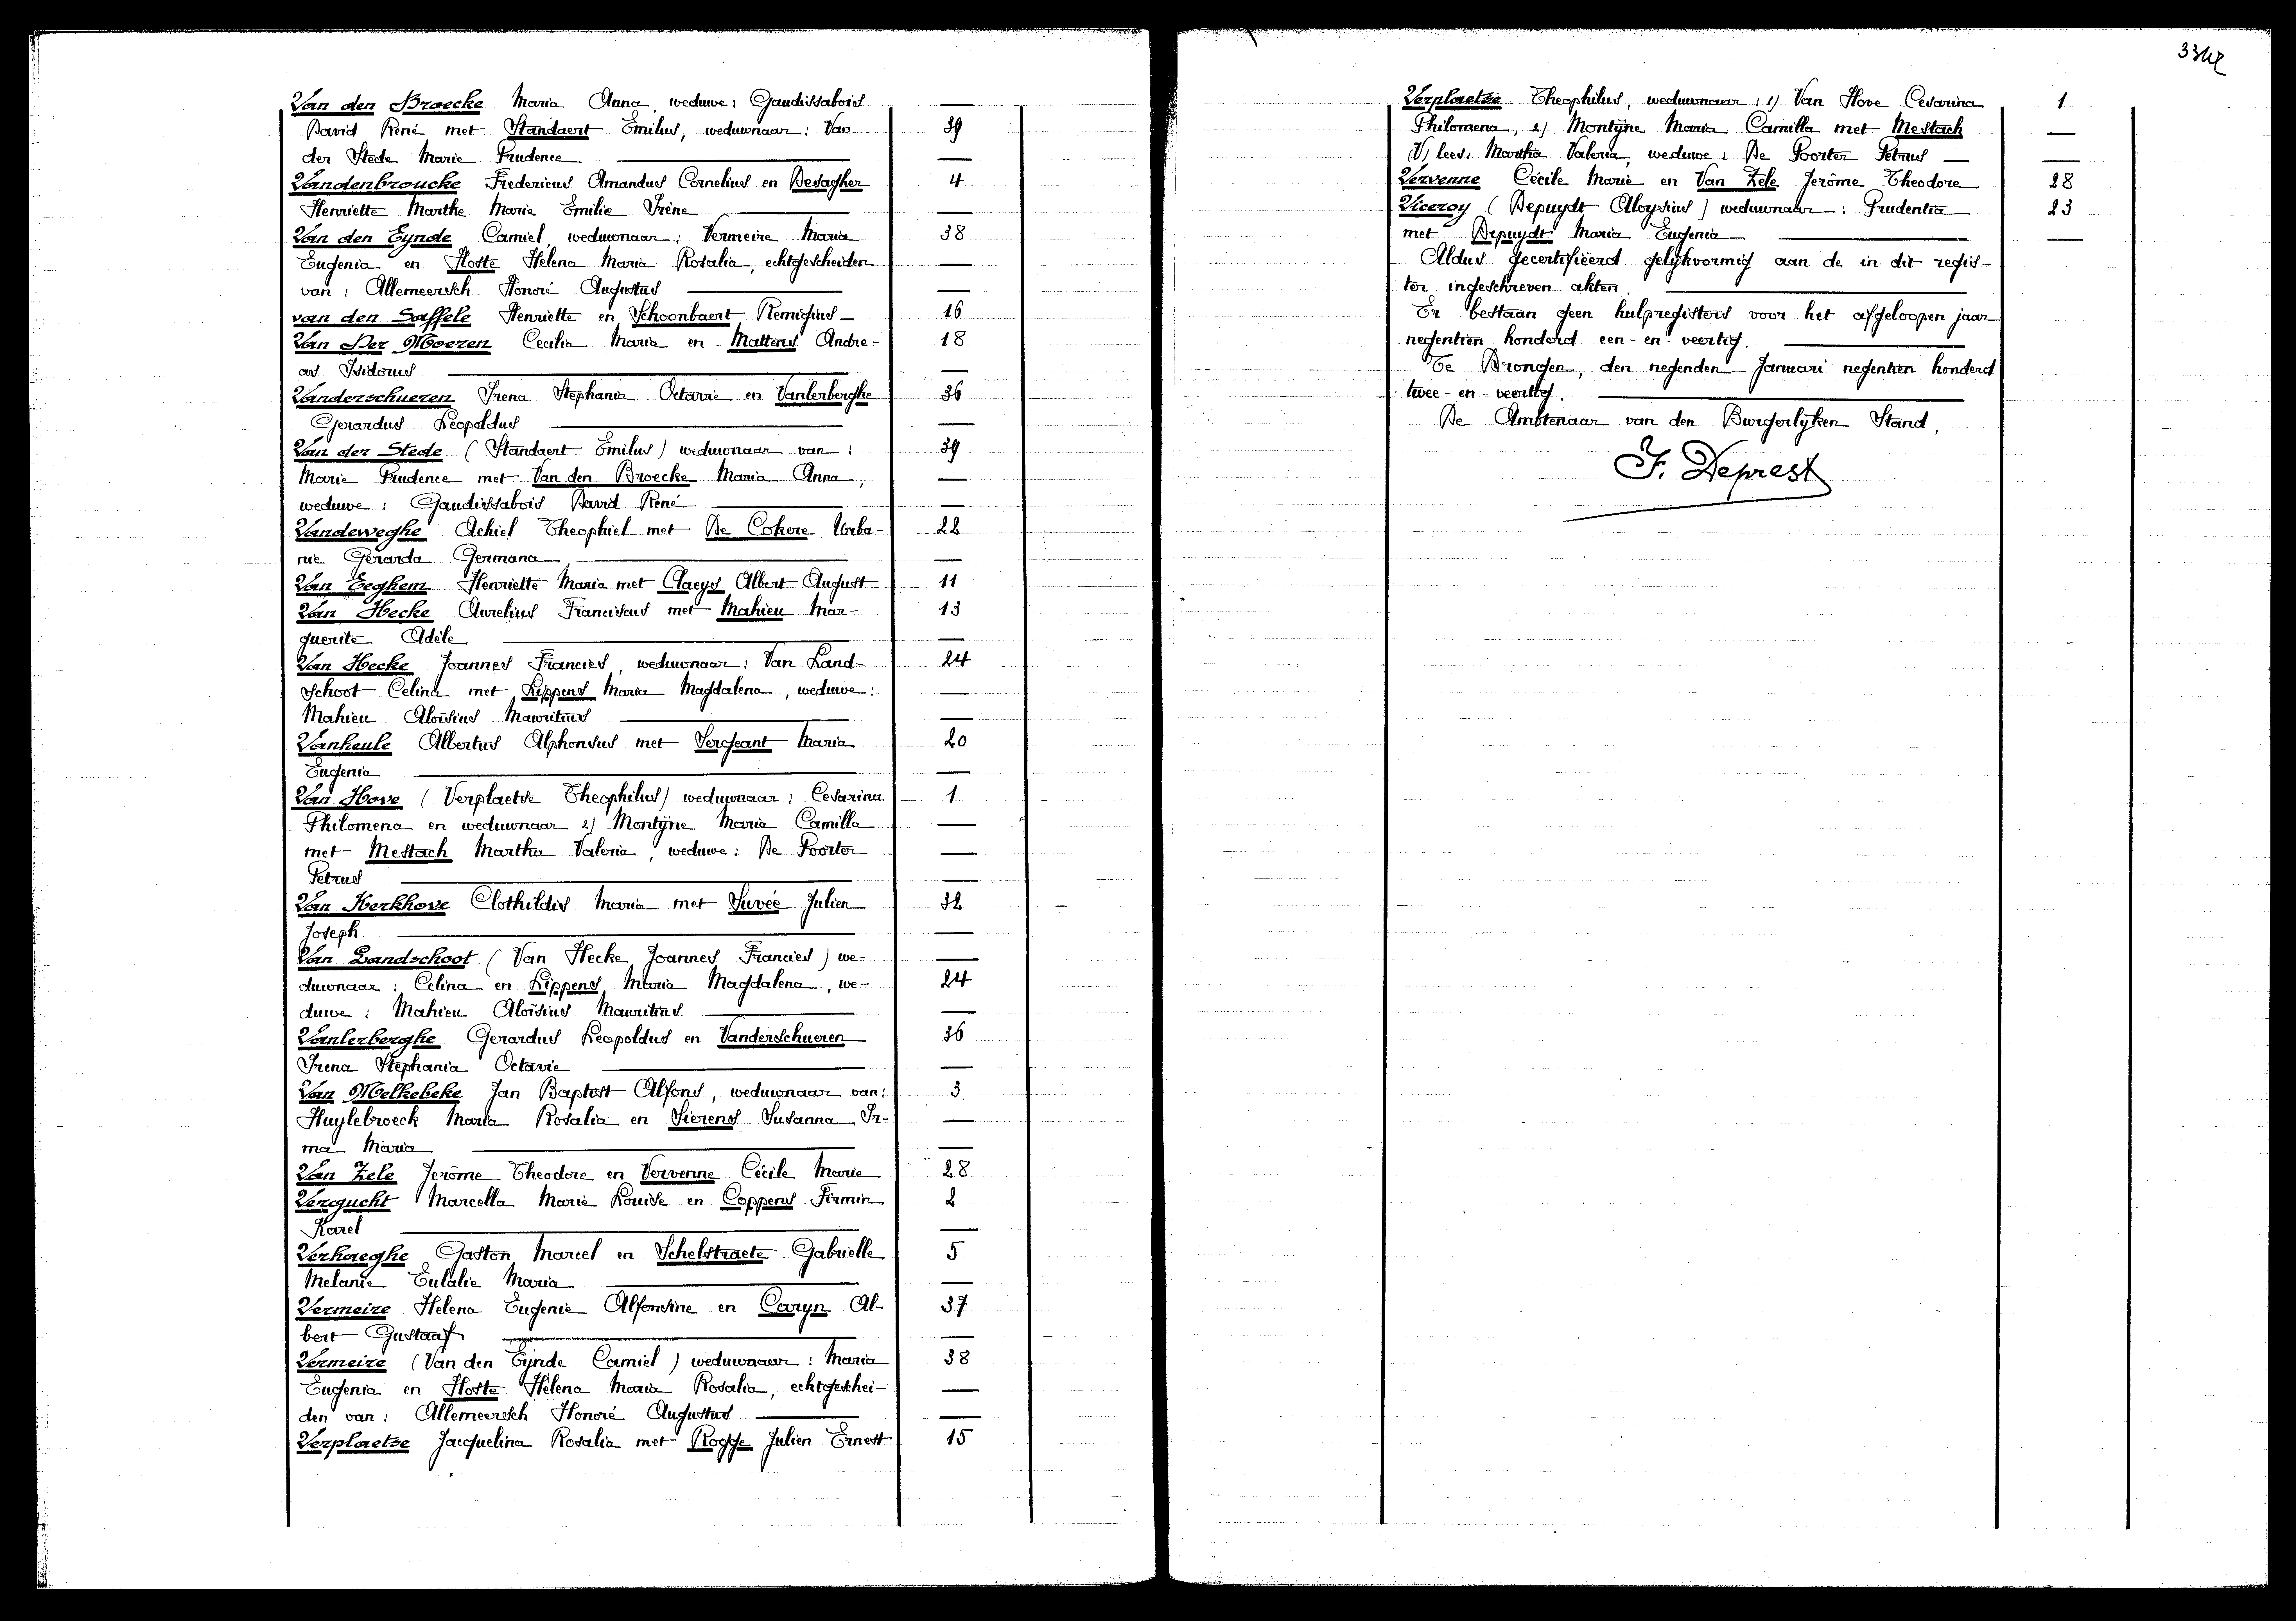 Van den Broecke Maria Anna, weduwe: Gaudissabois —
David René met Standaert Emilus, weduwnaar: Van 39
der Stede Marie Prudence — —
Vandenbroucke Fredericus Amandus Cornelius en Desagher 4
Henriette Marthe Marie Emilie Irène — —
Van den Eynde Camiel, weduwnaar: Vermeire Maria 38
Eugenia en Hoste Helena Maria Rosalia, echtgescheiden —
van: Allemeersch Honoré Augustus — —
van den Saffele Henriette en Schoonbaert Remigius — 16
Van Der Moeren Cecilia Maria en Mattens Andre- 18
as Isidorus — —
Vanderschueren Irena Stephania Octavie en Vanlerberghe 36
Gerardus Leopoldus — —
Van der Stede (Standaert Emilus) weduwnaar van: 39
Marie Prudence met Van den Broecke Maria Anna, —
weduwe: Gaudissabois David René — —
Vandeweghe Achiel Theophiel met De Cokere Urba- 22
nie Gerarda Germana — —
Van Eeghem Henriette Maria met Claeys Albert August 11
Van Hecke Aurelius Franciscus met Mahieu Mar- 13
guerite Adèle — —
Van Hecke Joannes Francies, weduwnaar: Van Land- 24
schoot Celina met Lippens Maria Magdalena, weduwe: —
Mahieu Aloïsius Mauritius — —
Vanheule Albertus Alphonsus met Sergeant Maria 20
Eugenia — —
Van Hove (Verplaetse Theophilus) weduwnaar: Cesarina 1
Philomena en weduwnaar 2) Montÿne Maria Camilla —
met Mestach Martha Valeria, weduwe: De Poorter —
Petrus — —
Van Kerkhove Clothildis Maria met Suvée Julien 32
Joseph — —
Van Landschoot (Van Hecke Joannes Francies) we- —
duwnaar: Celina en Lippens Maria Magdalena, we- 24
duwe: Mahieu Aloïsius Mauritius — —
Vanlerberghe Gerardus Leopoldus en Vanderschueren 36
Irena Stephania Octavie — —
Van Melkebeke Jan Baptist Alfons, weduwnaar van: 3
Huylebroeck Maria Rosalia en Sierens Susanna Ir- —
ma Maria — —
Van Zele Jerôme Theodore en Vervenne Cécile Marie 28
Vergucht Marcella Marie Louise en Coppens Firmin 2
Karel — —
Verhaeghe Gaston Marcel en Schelstraete Gabrielle 5
Melanie Eulalie Maria — —
Vermeire Helena Eugenie Alfonsine en Caryn Al- 37
bert Gustaaf — —
Vermeire (Van den Eÿnde Camiel) weduwnaar: Maria 38
Eugenia en Hoste Helena Maria Rosalia, echtgeschei- —
den van: Allemeersch Honoré Augustus — —
Verplaetse Jacquelina Rosalia met Rogge Julien Ernest 15
Verplaetse Theophilus, weduwnaar: 1) Van Hove Cesarina 1
Philomena, 2) Montÿne Maria Camilla met Mestach —
(V) lees: Martha Valeria, weduwe: De Poorter Petrus — —
Vervenne Cécile Marie en Van Zele Jerôme Theodore 28
Viceroy (Depuydt Aloysius) weduwnaar: Prudentia 23
met Depuydt Maria Eugenia — —
Aldus gecertifiëerd gelykvormig aan de in dit regis-
ter ingeschreven akten. —
Er bestaan geen hulpregisters voor het afgeloopen jaar
negentien honderd een-en-veertig. —
Te Drongen, den negenden Januari negentien honderd
twee-en-veertig. —
De Ambtenaar van den Burgerlyken Stand,
F. Deprest